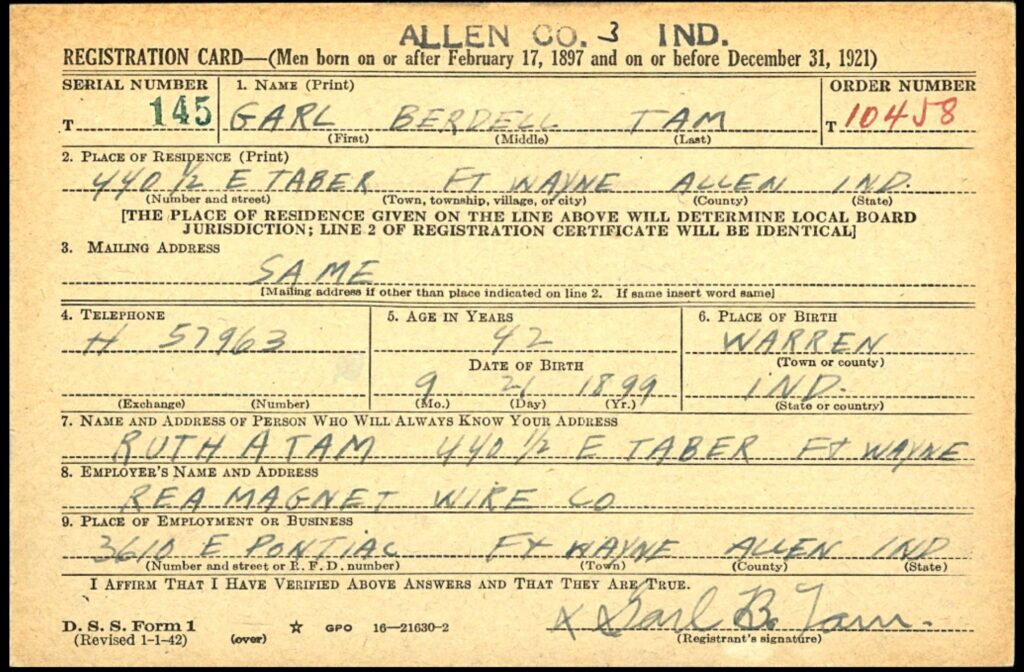 ALLEN CO. 3 IND.
REGISTRATION CARD—(Men born on or after February 17, 1897 and on or before December 31, 1921)
SERIAL NUMBER 1. NAME (Print) ORDER NUMBER
T 145 GARL BERDELL TAM T 10458
(First) (Middle) (Last)
2. PLACE OF RESIDENCE (Print)
440 1/2 E TABER FT WAYNE ALLEN IND.
(Number and street) (Town, township, village, or city) (County) (State)
[THE PLACE OF RESIDENCE GIVEN ON THE LINE ABOVE WILL DETERMINE LOCAL BOARD
JURISDICTION; LINE 2 OF REGISTRATION CERTIFICATE WILL BE IDENTICAL]
3. MAILING ADDRESS
SAME
[Mailing address if other than place indicated on line 2. If same insert word same]
4. TELEPHONE 5. AGE IN YEARS 6. PLACE OF BIRTH
H 57963 42 WARREN
DATE OF BIRTH (Town or county)
9 21 1899 IND.
(Exchange) (Number) (Mo.) (Day) (Yr.) (State or country)
7. NAME AND ADDRESS OF PERSON WHO WILL ALWAYS KNOW YOUR ADDRESS
RUTH A TAM 440 1/2 E TABER FT WAYNE
8. EMPLOYER'S NAME AND ADDRESS
REA MAGNET WIRE CO
9. PLACE OF EMPLOYMENT OR BUSINESS
3610 E PONTIAC FT WAYNE ALLEN IND
(Number and street or R. F. D. number) (Town) (County) (State)
I AFFIRM THAT I HAVE VERIFIED ABOVE ANSWERS AND THAT THEY ARE TRUE.
X Garl B. Tam.
D. S. S. Form 1
(Revised 1-1-42) (over) ☆ GPO 16—21630-2 (Registrant's signature)